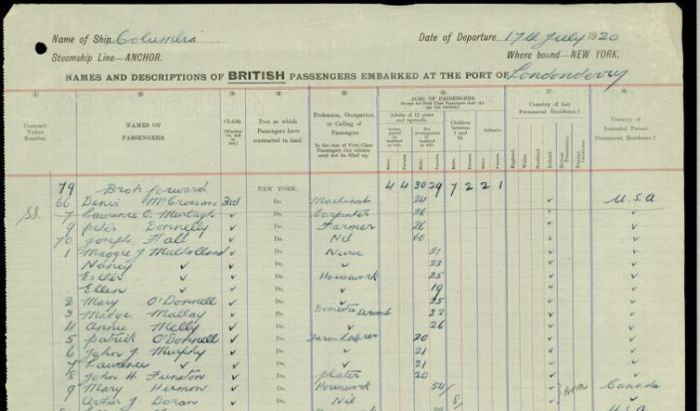 Name of Ship Columbia
Date of Departure 17th July 1920
Steamship Line—ANCHOR.
Where bound—NEW YORK.
NAMES AND DESCRIPTIONS OF BRITISH PASSENGERS EMBARKED AT THE PORT OF Londonderry
(1) (2) (3) (4) (5) (6) (7) (8)
Contract Ticket Number.
NAMES OF PASSENGERS.
CLASS.
Port at which Passengers have contracted to land.
Profession, Occupation, or Calling of Passengers
In the case of First Class Passengers this column need not be filled up.
AGES OF PASSENGERS.
Adults of 12 years and upwards
Children between 1 and 12.
Infants.
Country of last Permanent Residence
England. Wales. Scotland. Ireland.
Country of Intended Future Permanent Residence
79 Brot forward NEW YORK. 4 4 30 29 7 2 2 1
66 Denis McCrossan 3rd Do. Machinist 24 U.S.A
SS. 7 Lawrence C. Murtagh Do. Carpenter 26
9 Peter Donnelly Do. Farmer 26
70 Joseph Hall Do. Nil 60
1 Maggie J Mulholland Do. Nurse 21
Nancy Do. 23
Esther Do. Housework 25
Ellen Do. 19
2 Mary O'Donnell Do. 25
3 Madge Mallay Do. Domestic 22
4 Annie Melly Do. 26
5 Patrick O'Donnell Do. Farm Labrer 20
6 John J. Murphy Do. 21
7 Lawrence Do. 21
8 John H. Funston Do. plater 20
9 Mary Do. Housework 54 Canada
Arthur J. Doran Do. Nil 8 U.S.A